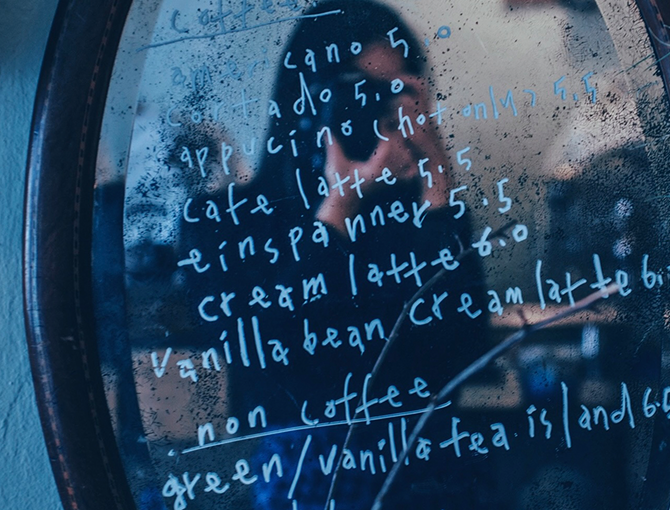 coffee
americano 5.0
cortado 5.0
appucino (hot only) 5.5
cafe latte 5.5
einspanner 5.5
cream latte 6.0
vanilla bean cream latte 6.
non coffee
green/vanilla tea island 6.5